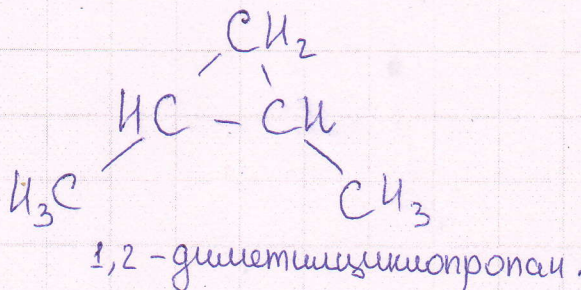 CH₂
HC – CH
H₃C CH₃
1,2-диметилциклопропан.